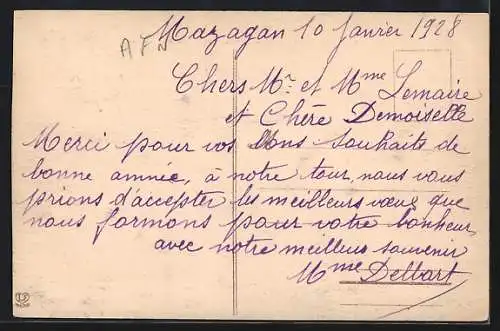 AFN
Mazagan 10 Janvier 1928
Chers Mr. et Mme Lemaire
et Chère Demoiselle
Merci pour vos bons souhaits de
bonne année, à notre tour, nous vous
prions d'accepter les meilleurs vœux que
nous formons pour votre bonheur,
avec notre meilleur souvenir
Mme Delbart